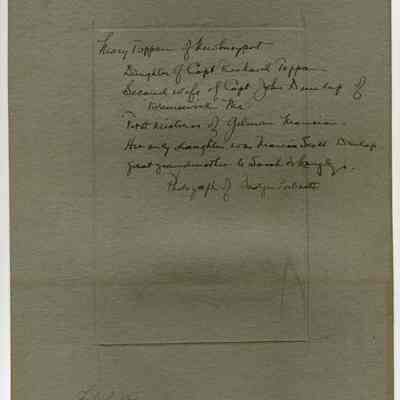 Mary Toppan of Newburyport
Daughter of Capt Richard Toppan
Second wife of Capt John Dunlap of
Brunswick Me
First mistress of Gilman Mansion.
Her only daughter was Frances Scott Dunlap
great grandmother to Sarah
Photograph of